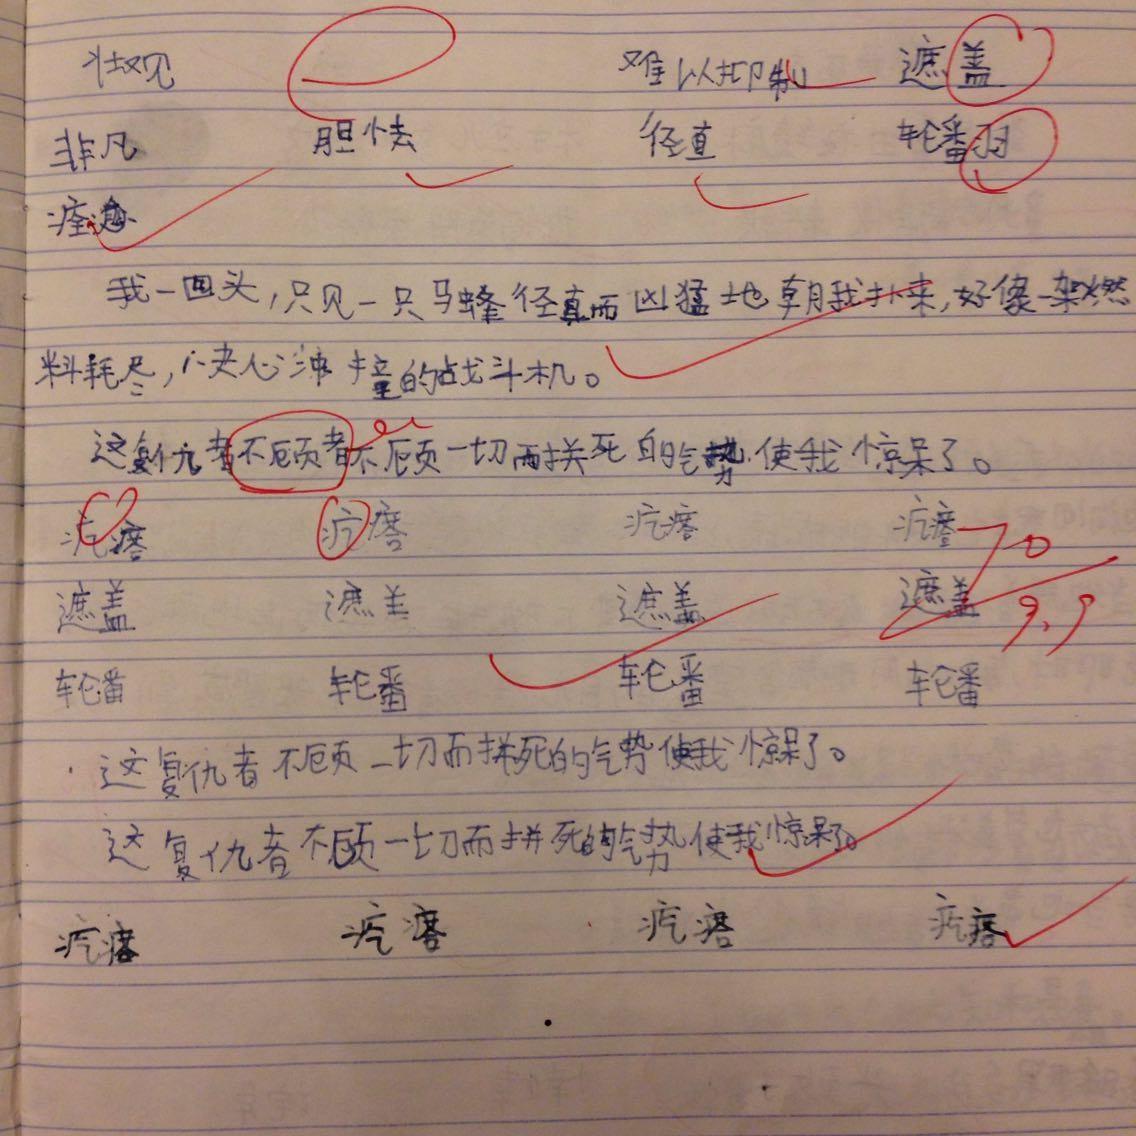 壮观 难以抑制 遮盖
非凡 胆怯 径直 轮番羽
痊愈
我一回头,只见一只马蜂径直而凶猛地朝我扑来,好像一架燃
料耗尽,决心沖撞的战斗机。
这复仇者不顾者不顾一切而拼死的气势使我惊呆了。
疙瘩 疙瘩 疙瘩 疙瘩
遮盖 遮盖 遮盖
9.9
轮番 轮番 轮番 轮番
这复仇者不顾一切而拼死的气势使我惊呆了。
这复仇者不顾一切而拼死的气势使我惊呆了。
疙瘩 疙瘩 疙瘩 疙瘩